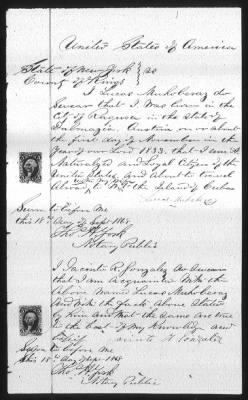 United States of America
State of New York } ss
County of Kings
I Lucas Muhoberaz do
Swear that I was born in the
City of Ragusa in the State of
Dalmazia, Austria on or about
the first day of November in the
Year of our Lord 1833. that I am A
Naturalized and Loyal Citizen of the
United States, and about to travel
Abroad to the Island of Cuba
Sworn to before me
this 18th day of Sept 1868
Notary Public
I Jacinto R. Gonzalez do Swear
that I am Acquainted With the
Above Named Lucas Muhoberaz
And With the facts Above Stated
by him And that the Same are true
to the best of my Knowledge and
belief
Jacinto R. Gonzalez
Sworn to before me
this 18th day of Sept 1868
Notary Public